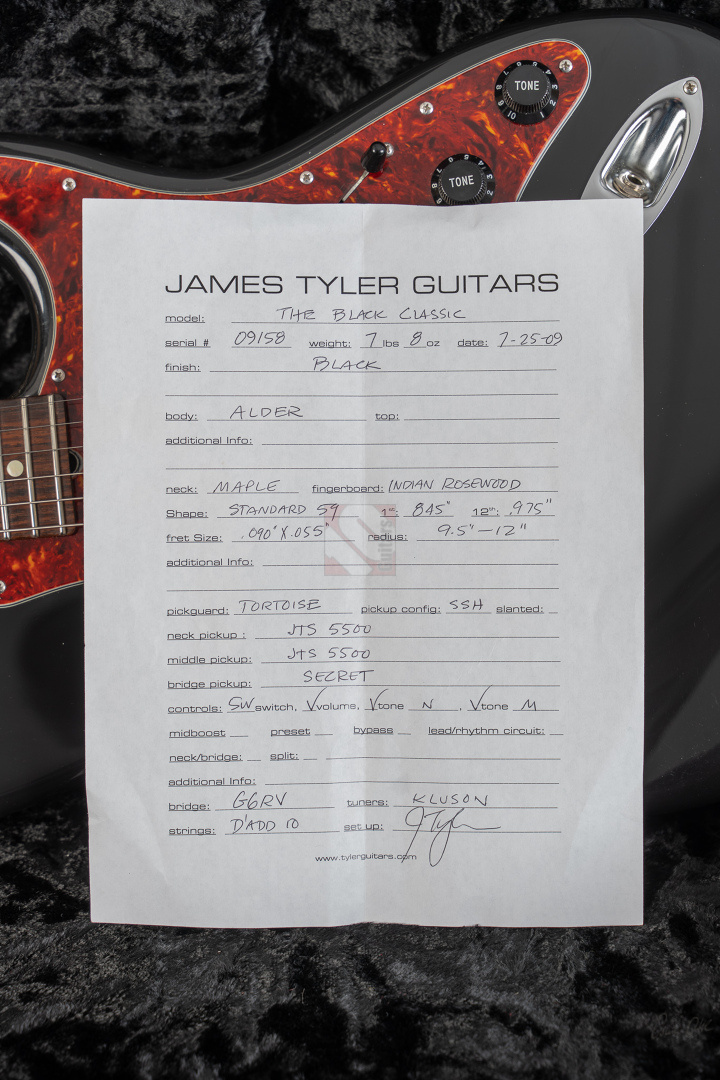 TONE
10 9 8 7 6 5 4 3 2 1
TONE
JAMES TYLER GUITARS
model: THE BLACK CLASSIC
serial # 09158 weight: 7 lbs 8 oz date: 7-25-09
finish: BLACK
body: ALDER top:
additional Info:
neck: MAPLE fingerboard: INDIAN ROSEWOOD
Shape: STANDARD 59 1st: .845" 12th: .975"
fret Size: .090" X .055" radius: 9.5" — 12"
additional Info:
pickguard: TORTOISE pickup config: SSH slanted:
neck pickup : JTS 5500
middle pickup: JTS 5500
bridge pickup: SECRET
controls: 5W switch, √ volume, √ tone N , √ tone M
midboost preset bypass lead/rhythm circuit:
neck/bridge: split:
additional Info:
bridge: G6RV tuners: KLUSON
strings: D'ADD 10 set up: JTyler
www.tylerguitars.com
Guitars